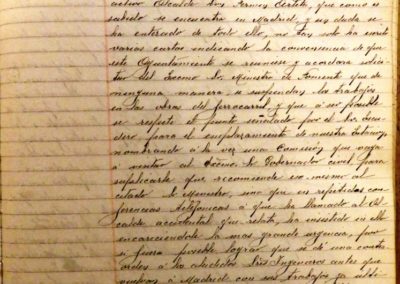 activo Alcalde Don Fermin Certete, que como es
sabido se encuentra en Madrid, y sin duda se
ha enterado de todo ello, no tan solo ha escrito
varias cartas indicando la conveniencia de que
este Ayuntamiento se reuniese y acordara solici-
tar del Excmo Sr. Ministro de Fomento que de
ninguna manera se suspendan los trabajos
en las obras del ferrocarril y que a ser posible
se respete el punto señalado por el Sr. Escu-
dero para el emplazamiento de nuestra Estacion,
nombrando á la vez una Comisión que vaya
a visitar al Excmo. Sr. Gobernador civil para
suplicarle que recomiende lo mismo al
citado Sr. Ministro, sino que en repetidas con-
ferencias telefonicas á que ha llamado al Al-
calde accidental que relata, ha insistido en ello
encareciendole la mas grande urgencia, por
si fuera posible lograr que se dé una contra
orden á los aludidos Sres Ingenieros antes que
vuelvan á Madrid con sus trabajos ya ulti-